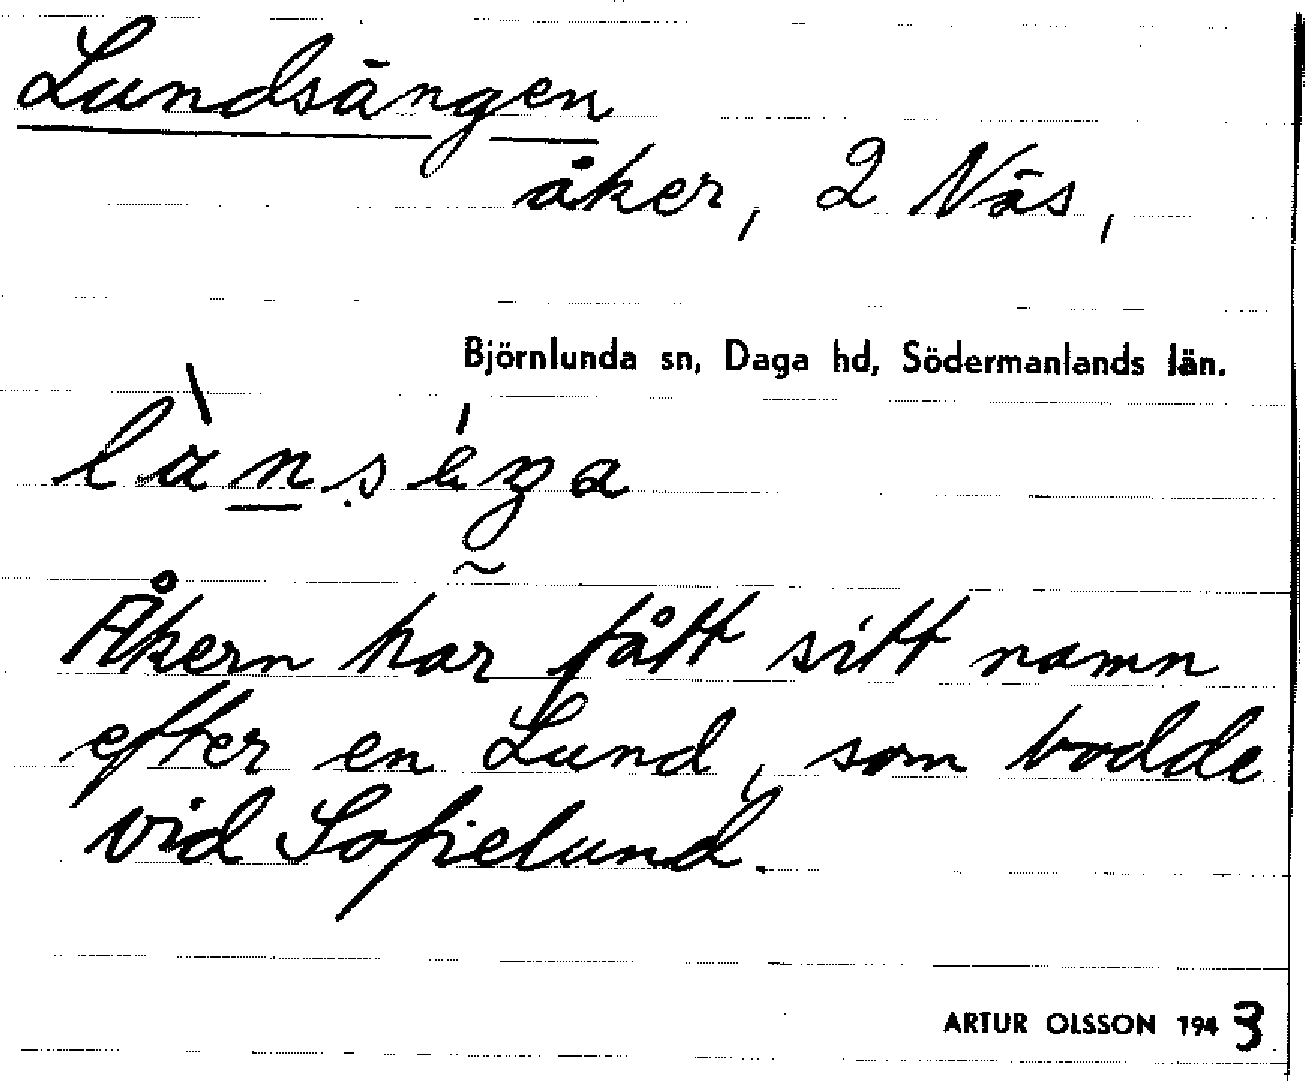 Lundsängen
åker, 2 Näs,
Björnlunda sn, Daga hd, Södermanlands län.
Åkern har fått sitt namn
efter en Lund, som bodde
vid Sofielund.
ARTUR OLSSON 1943